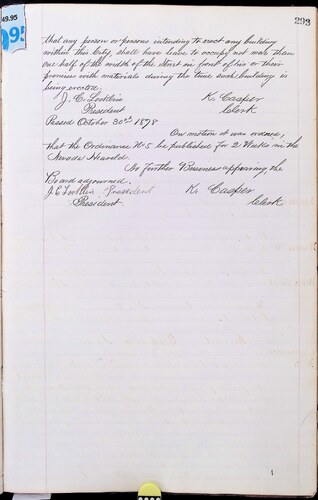 49.95
95
293
that any person or persons intending to erect any building
within this City shall have leave to occupy not more than
one half of the width of the Street in front of his or their
premises with materials during the time such building is
being erected.
J. C. K. Casper
President Clerk
Passed October 30th 1878
On motion it was ordered,
that the Ordinance No 5 be published for 2 Weeks in the
No further Business appearing the
Board adjourned.
J. C. President K. Casper
President Clerk